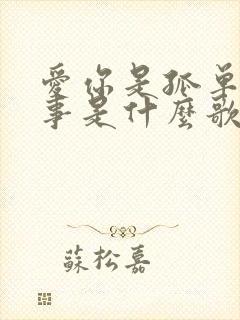 愛你是孤單
事是什麼歌
蘇松嘉